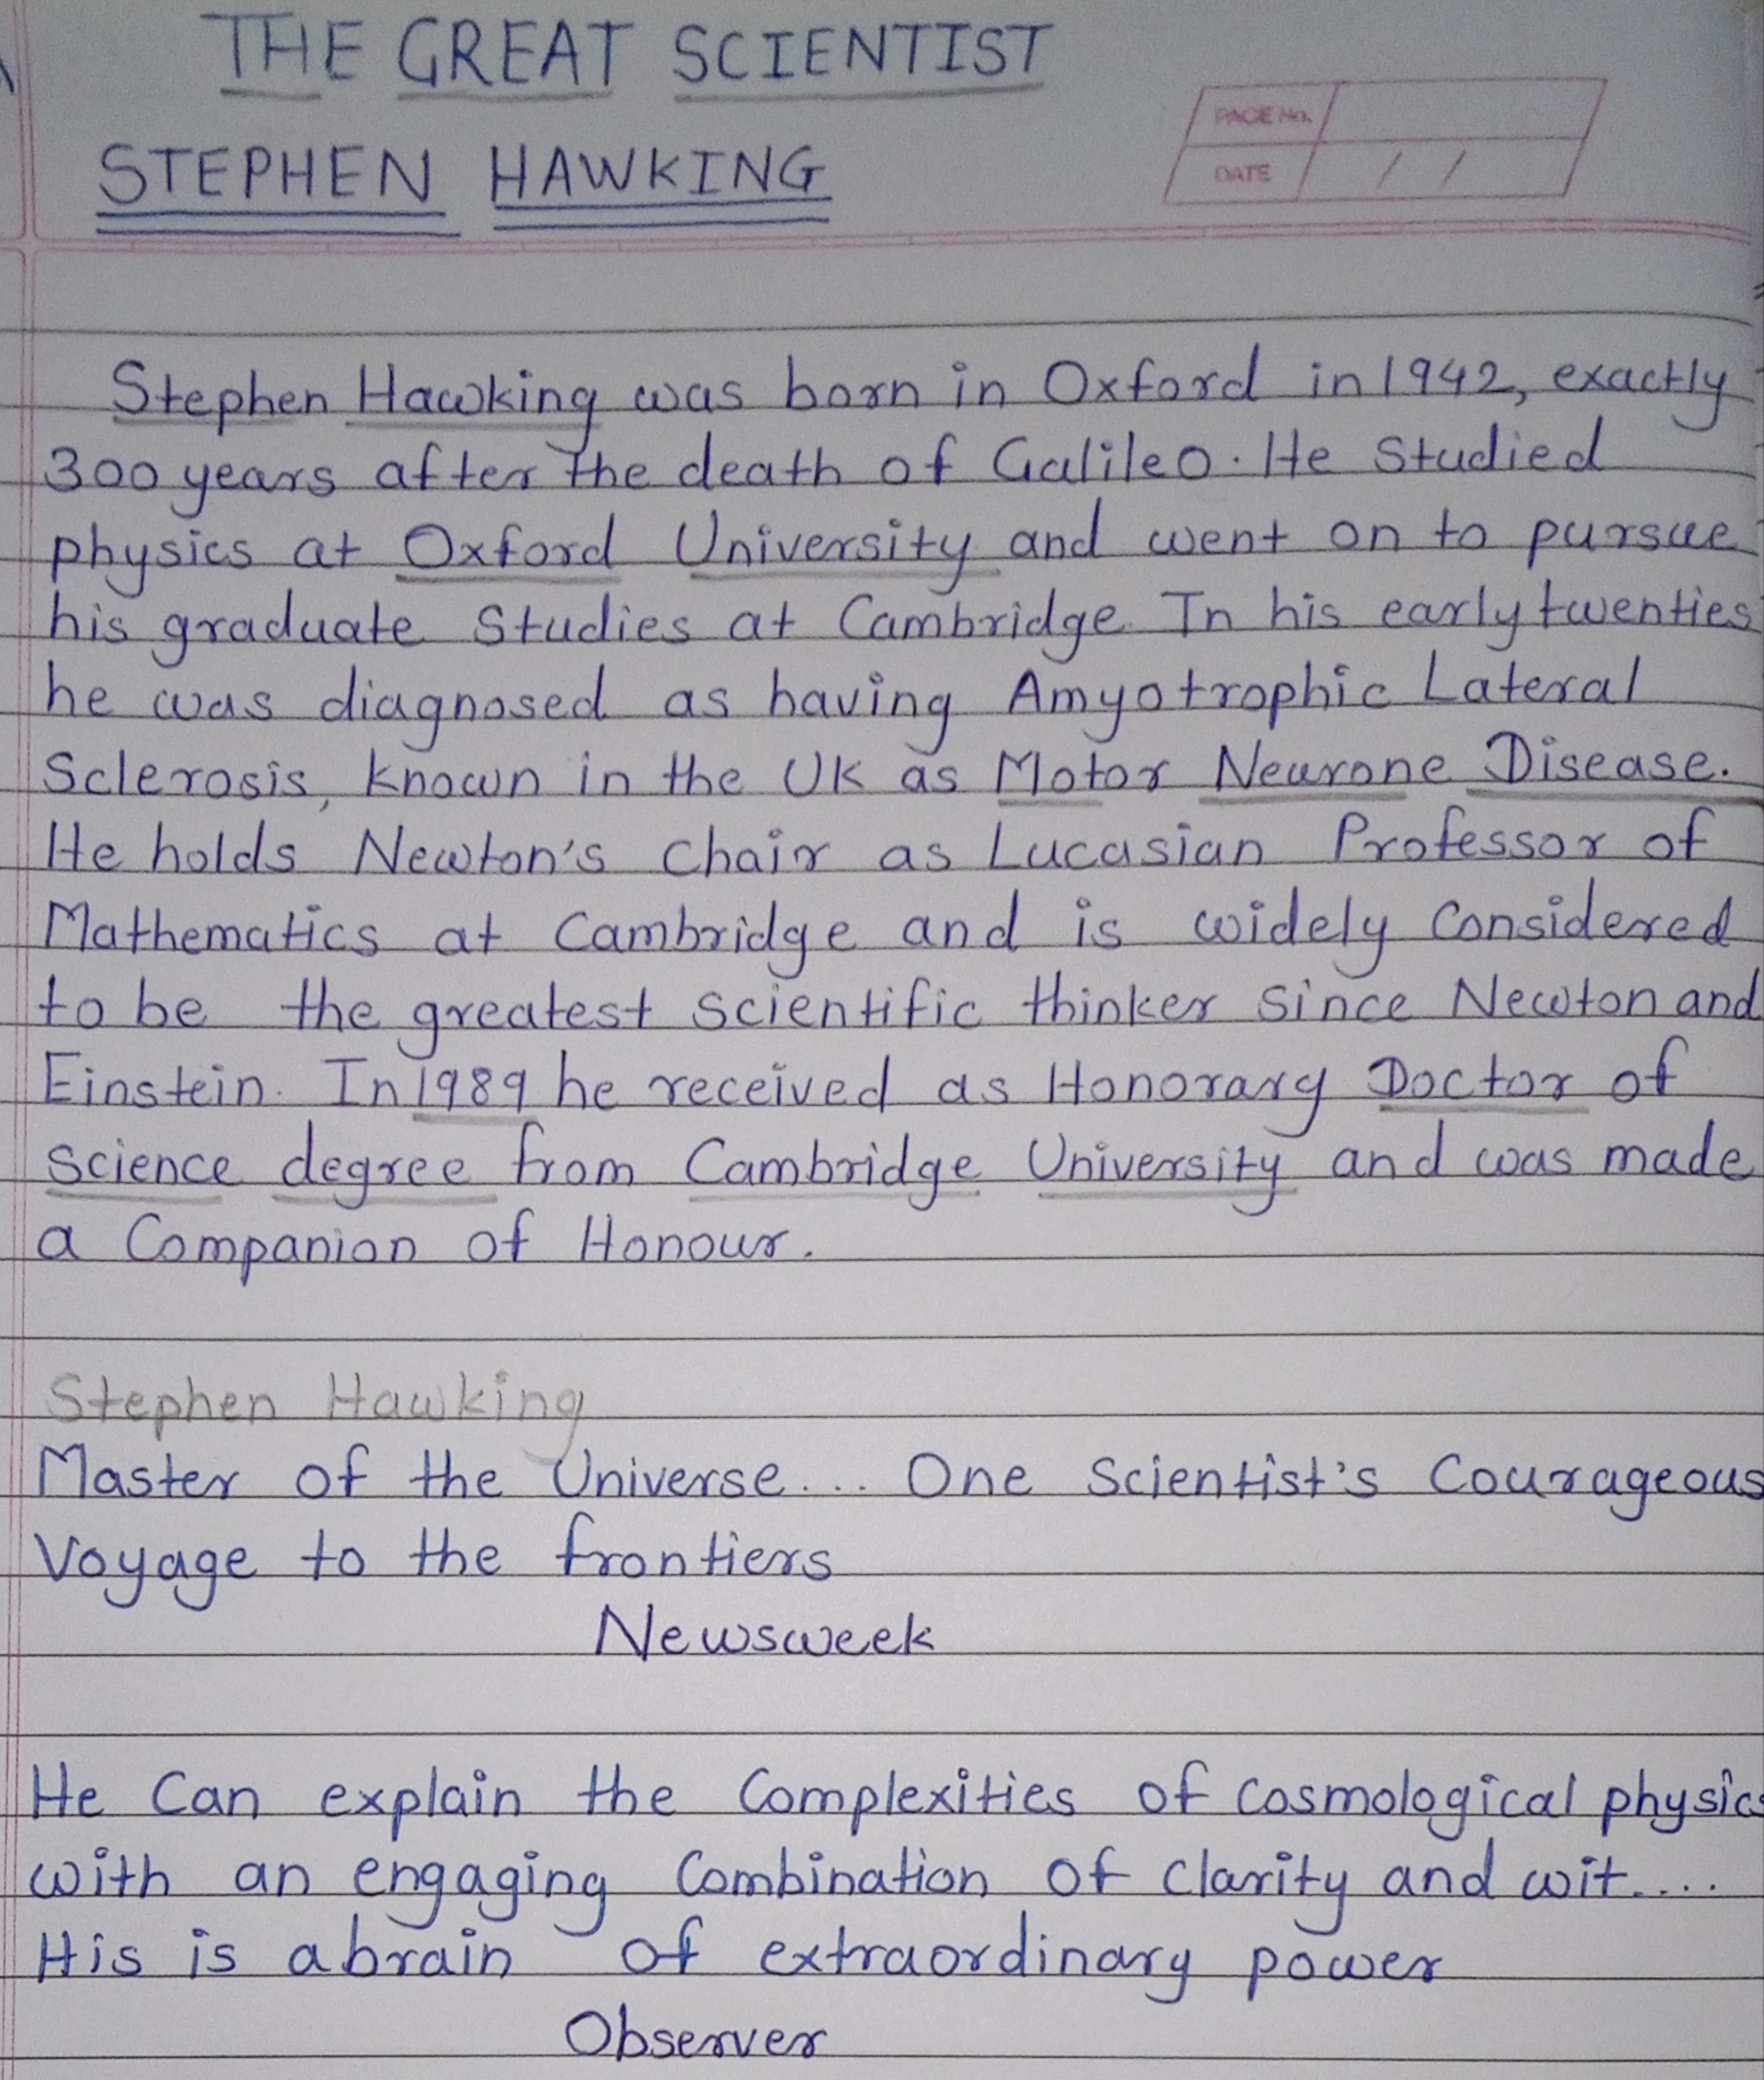 THE GREAT SCIENTIST
STEPHEN HAWKING
PAGE No.
DATE / /
Stephen Hawking was born in Oxford in 1942, exactly
300 years after the death of Galileo. He studied
physics at Oxford University and went on to pursue
his graduate studies at Cambridge. In his early twenties
he was diagnosed as having Amyotrophic Lateral
Sclerosis, known in the UK as Motor Neurone Disease.
He holds Newton's chair as Lucasian Professor of
Mathematics at Cambridge and is widely Considered
to be the greatest scientific thinker since Newton and
Einstein. In 1989 he received as Honorary Doctor of
science degree from Cambridge University and was made
a Companion of Honour.
Stephen Hawking
Master of the Universe... One Scientist's Courageous
Voyage to the frontiers
Newsweek
He Can explain the Complexities of cosmological physics
with an engaging Combination of clarity and wit....
His is a brain of extraordinary power
Observer